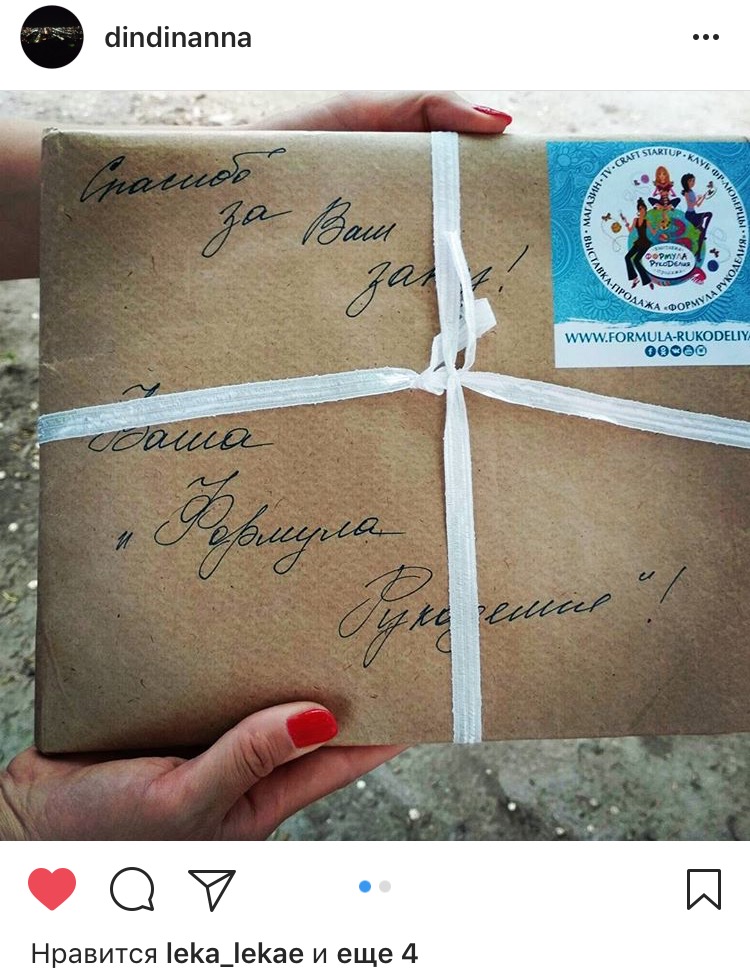 dindinanna
Спасибо
за Ваш
заказ!
Ваша
"Формула
Рукоделия"!
МАГАЗИН • TV • CRAFT STARTUP • КЛУБ ФР-ЛЮБЕРЦЫ •
ВЫСТАВКА-ПРОДАЖА «ФОРМУЛА РУКОДЕЛИЯ»
ВЫСТАВКА
ФОРМУЛА
РУКОДЕЛИЯ
ПРОДАЖА
WWW.FORMULA-RUKODELIYA
Нравится leka_lekae и еще 4